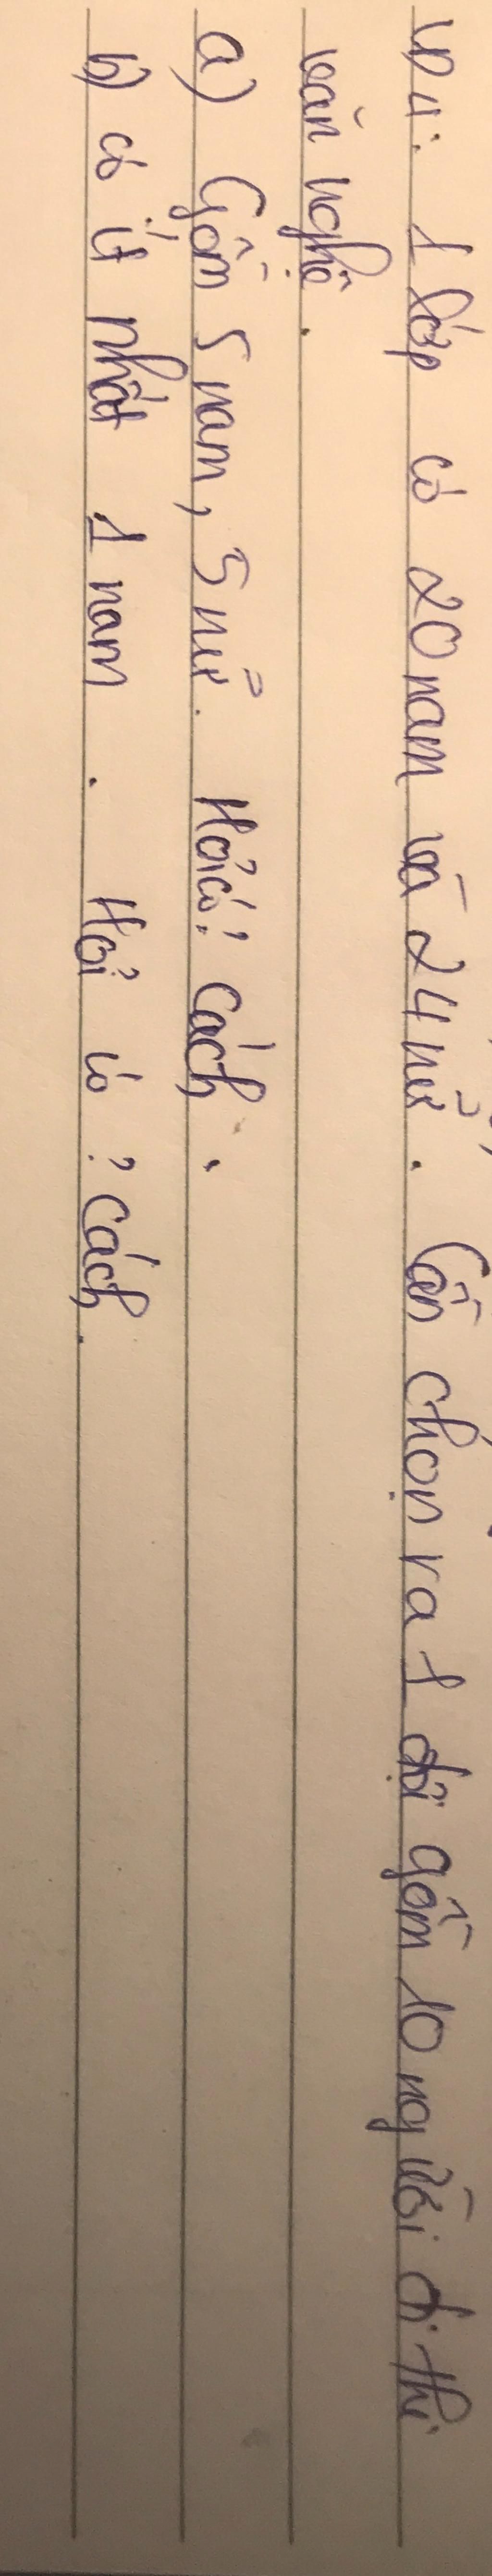 VD4: 1 lớp có 20 nam và 24 nữ. Cần chọn ra 1 đội gồm 10 người đi thi
văn nghệ.
a) Gồm 5 nam, 5 nữ. Hỏi có? cách.
b) có ít nhất 1 nam. Hỏi có? cách.